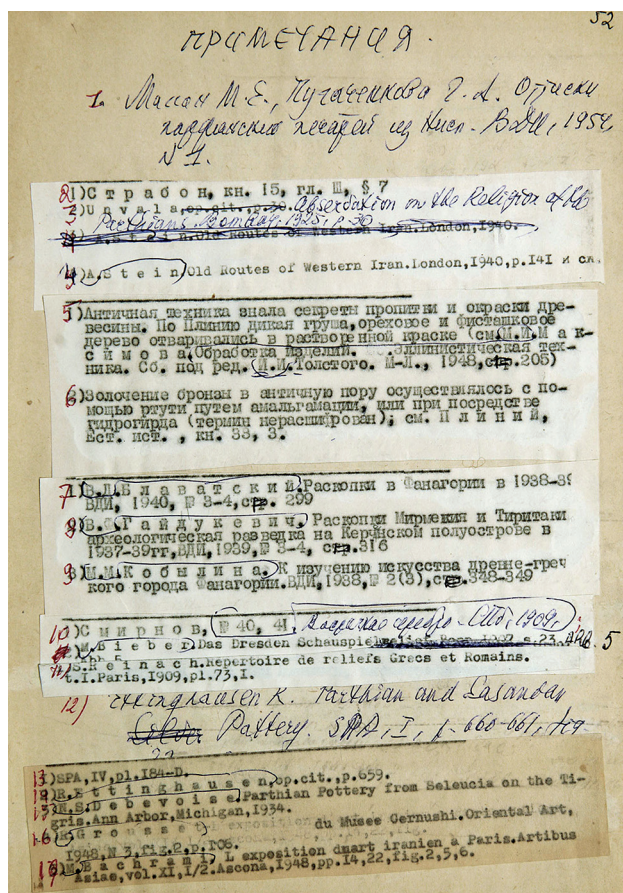 52
ПРИМЕЧАНИЯ.
1. Массон М.Е., Пугаченкова Г.А. Оттиски
парфянских печатей из Нисы. ВДИ, 1954,
№ 1.
2)Страбон, кн. 15, гл. Ш, § 7
3)Unvala, op.cit., p.30. Observation on the Religion of the
Parthians. Bombay, 1925, p. 30
A.Stein.Old Routes of Western Iran.London,1940.
4)A.Stein Old Routes of Western Iran.London,1940,p.141 и сл.
5)Античная техника знала секреты пропитки и окраски дре-
весины. По Плинию дикая груша,ореховое и фисташковое
дерево отваривались в растворенной краске (см.М.И.Мак-
симова.Обработка изделий. Эллинистическая тех-
ника. Сб. под ред. И.И.Толстого. М-Л., 1948,стр.205)
6)Золочение бронзы в античную пору осуществлялось с по-
мощью ртути путем амальгамации, или при посредстве
гидрогирда (термин нерасшифрован); см. Плиний,
Ест. ист., кн. 33, 3.
7)В.Д.Блаватский.Раскопки в Фанагории в 1938-39
ВДИ, 1940, № 3-4,стр. 299
8)В.Ф.Гайдукевич. Раскопки Мирмекия и Тиритаки
археологическая разведка на Керчнском полуострове в
1937-39гг,ВДИ,1939,№ 3-4, стр.316
9)М.М.Кобылина. К изучению искусства древне-греч
кого города Фанагории.ВДИ,1938,№ 2(3),стр.348-349
10)Смирнов, № 40, 41. Восточное серебро - СПб, 1909.
M.Bieber.Das Dresden Schauspielrelief. 1907 s.23. Abb. 5
11)S.Reinach.Repertoire de reliefs Grecs et Romains.
t.I.Paris,1909,pl.73,I.
12) Ettinghausen R. Parthian and Sasanian
Pottery. SPA, I, p. 660-661, fig.
13)SPA,IV,pl.184-D.
14)R.Ettinghausen,op.cit.,p.659.
15)N.S.Debevoise.Parthian Pottery from Seleucia on the Ti-
gris.Ann Arbor,Michigan,1934.
16)R.Grousset. du Musee Cernushi.Oriental Art,
1948,N 3,fig.2,p.106.
17)M.Bachrami, L exposition dmart iranien a Paris.Artibus
Asiae,vol.XI,I/2.Ascona,1948,pp.14,22,fig.2,5,6.